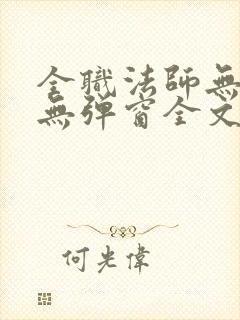 全職法師無
無弹窗全文
何光偉